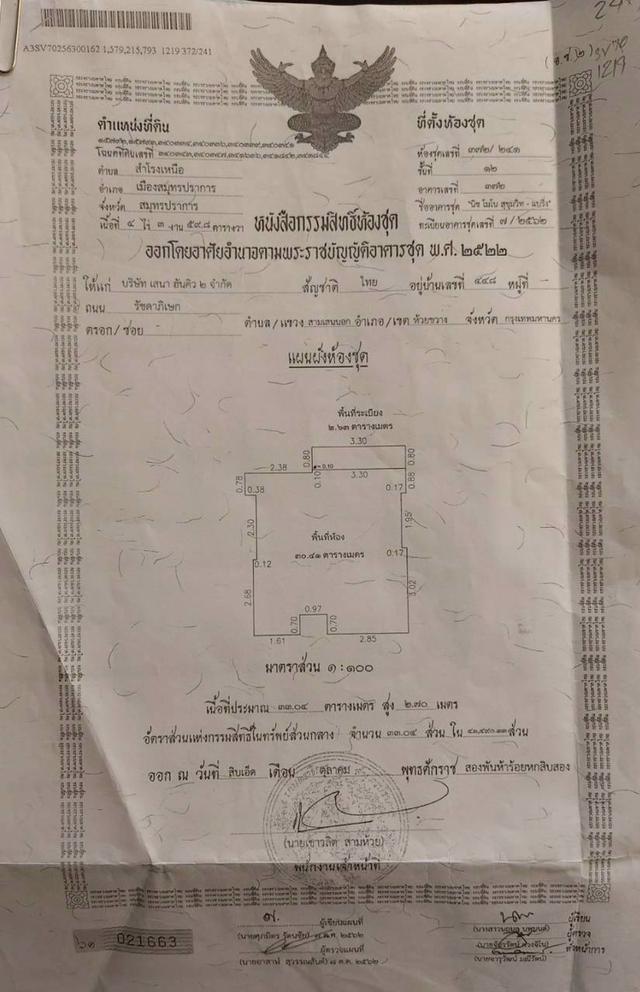 A3SV70256300162 1,579,215,793 1219 372/241
1219
ตำแหน่งที่ดิน
ที่ตั้งห้องชุด
โฉนดที่ดินเลขที่
ห้องชุดเลขที่ ๓๗๒/๒๔๑
ตำบล สำโรงเหนือ
ชั้นที่ ๑๒
อำเภอ เมืองสมุทรปราการ
อาคารเลขที่ ๓๗๒
จังหวัด สมุทรปราการ
ชื่ออาคารชุด "นิช โมโน สุขุมวิท - แบริ่ง"
เนื้อที่ ๔ ไร่ ๓ งาน ๕๙.๘ ตารางวา
ทะเบียนอาคารชุดเลขที่ ๗/๒๕๖๒
หนังสือกรรมสิทธิ์ห้องชุด
ออกโดยอาศัยอำนาจตามพระราชบัญญัติอาคารชุด พ.ศ.๒๕๒๒
ให้แก่ บริษัท เสนา ฮันคิว ๒ จำกัด สัญชาติ ไทย อยู่บ้านเลขที่ ๔๔๘ หมู่ที่ -
ถนน รัชดาภิเษก
ตรอก/ซอย - ตำบล/แขวง สามเสนนอก อำเภอ/เขต ห้วยขวาง จังหวัด กรุงเทพมหานคร
แผนผังห้องชุด
พื้นที่ระเบียง
๒.๖๓ ตารางเมตร
3.30
0.80
0.80
2.38
0.10
3.30
0.78
0.10
0.88
0.38
0.17
2.30
1.95
พื้นที่ห้อง
๓๐.๔๑ ตารางเมตร
0.17
0.12
2.68
3.02
0.97
0.70
0.70
1.61
2.85
มาตราส่วน ๑:๑๐๐
เนื้อที่ประมาณ ๓๓.๐๔ ตารางเมตร สูง ๒.๗๐ เมตร
อัตราส่วนแห่งกรรมสิทธิ์ในทรัพย์ส่วนกลาง จำนวน ๓๓.๐๔ ส่วน ใน ส่วน
ออก ณ วันที่ สิบเอ็ด เดือน ตุลาคม พุทธศักราช สองพันห้าร้อยหกสิบสอง
(นายเชาวลิต สามห้วย)
พนักงานเจ้าหน้าที่
021663
ผู้เขียนแผนที่
ผู้เขียน
๗ ต.ค. ๒๕๖๒
ผู้ตรวจ
ผู้ตรวจแผนที่
หัวหน้าการ
๘ ต.ค. ๒๕๖๒